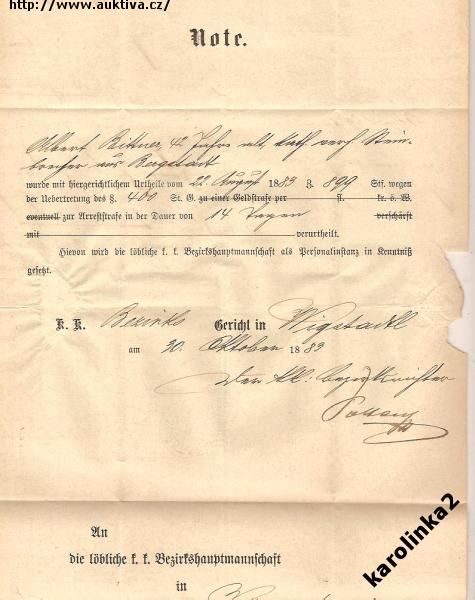 http://www.auktiva.cz/
Note.
Albert Bittner, 42 Jahre alt, kath. verh. Stein-
brecher aus Bergstadt
wurde mit hiergerichtlichem Urtheile vom 22. August 1883 Z. 899 Stf. wegen
der Uebertretung des §. 460 St. G. zu einer Geldstrafe per fl. kr. ö. W.
eventuell zur Arreststrafe in der Dauer von 14 Tagen verschärft
mit verurtheilt.
Hievon wird die löbliche k. k. Bezirkshauptmannschaft als Personalinstanz in Kenntniß
gesetzt.
K. K. Bezirks Gericht in Wigstadtl
am 20. Oktober 1883
Der kk. Bezirksrichter
An
die löbliche k. k. Bezirkshauptmannschaft
in
karolinka2